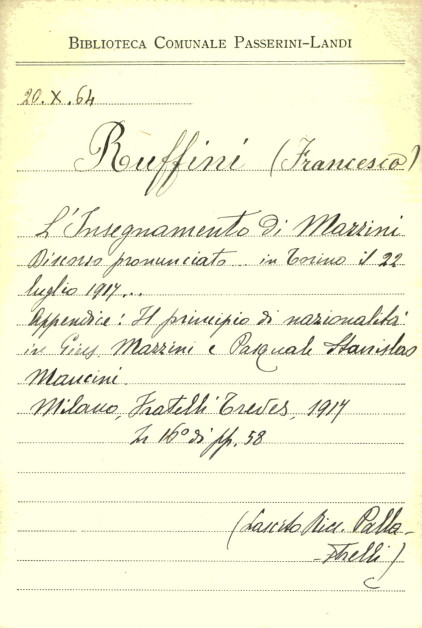 BIBLIOTECA COMUNALE PASSERINI-LANDI
20. X. 64
Ruffini (Francesco)
L'Insegnamento di Mazzini
Discorso pronunciato .. in Torino il 22
luglio 1917...
Appendice: Il principio di nazionalità
in Gius. Mazzini e Pasquale Stanislao
Mancini.
Milano, Fratelli Treves, 1917
In 16° di pp. 58
(Lascito Ricc. Palla-
-strelli)